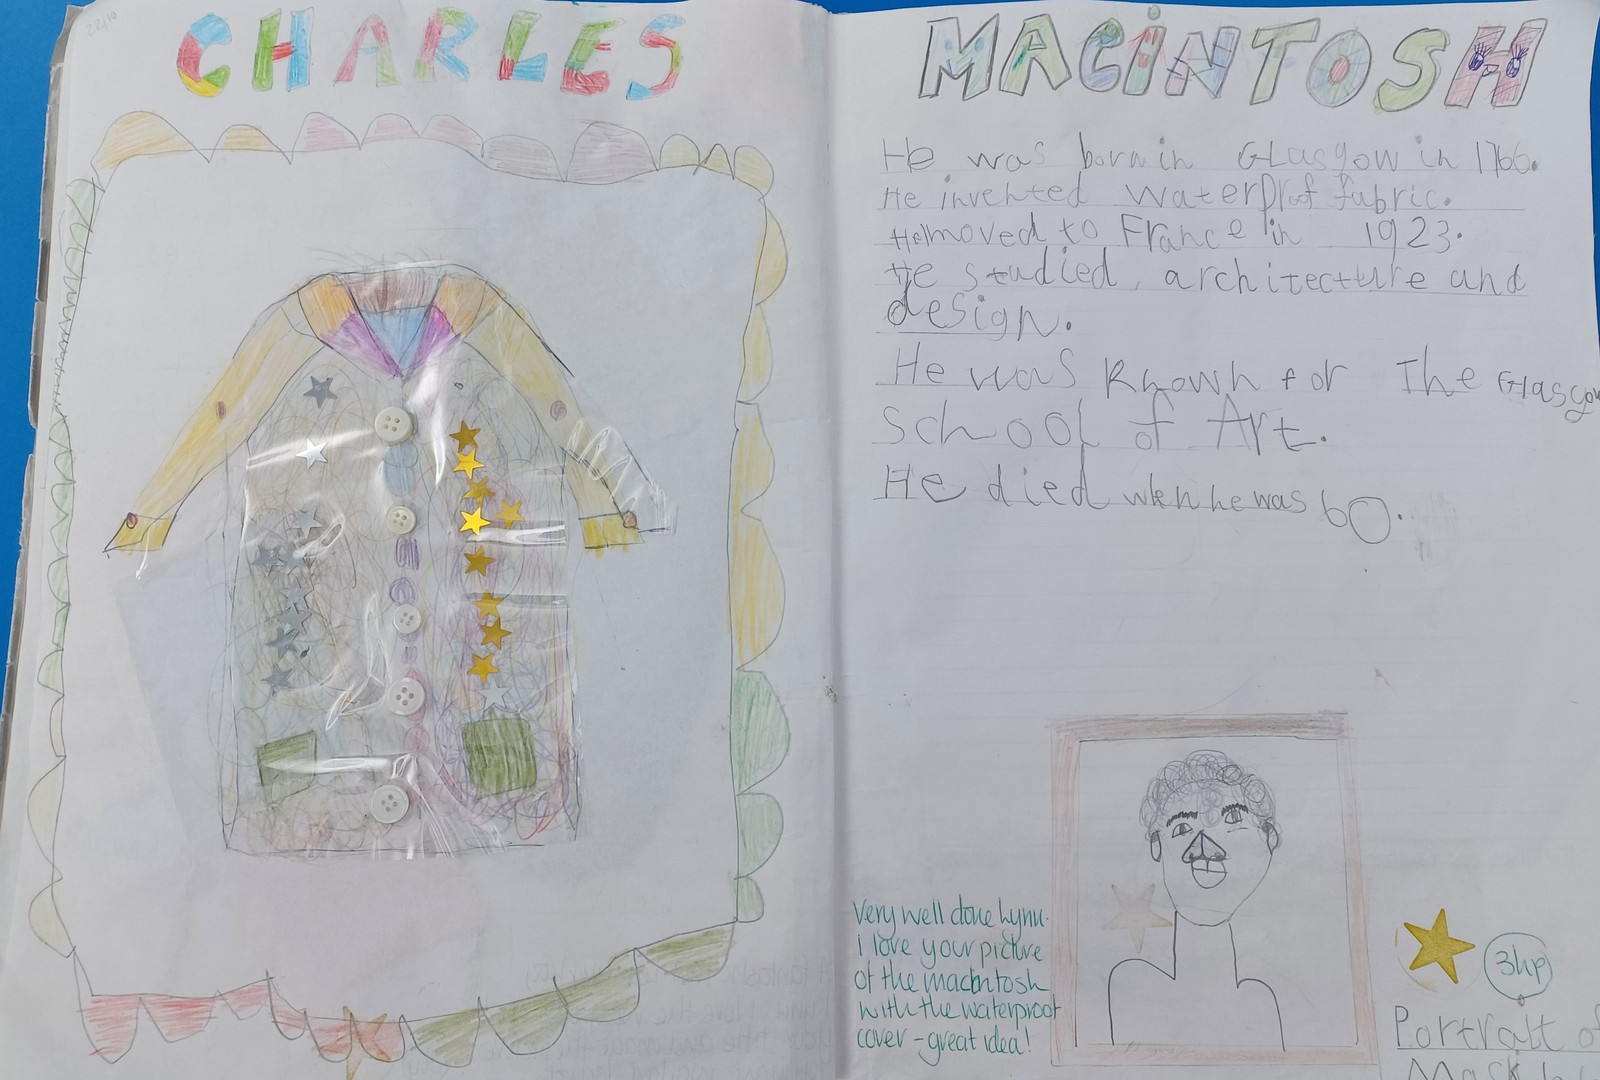 22/10
CHARLES
MACINTOSH
He was born in Glasgow in 1766.
He invented waterproof fabric.
He moved to France in 1923.
He studied architecture and
design.
He was known for The Glasgow
School of Art.
He died when he was 60.
Very well done Lynn.
I love your picture
of the macintosh
with the waterproof
cover - great idea!
3hp
Portrait of